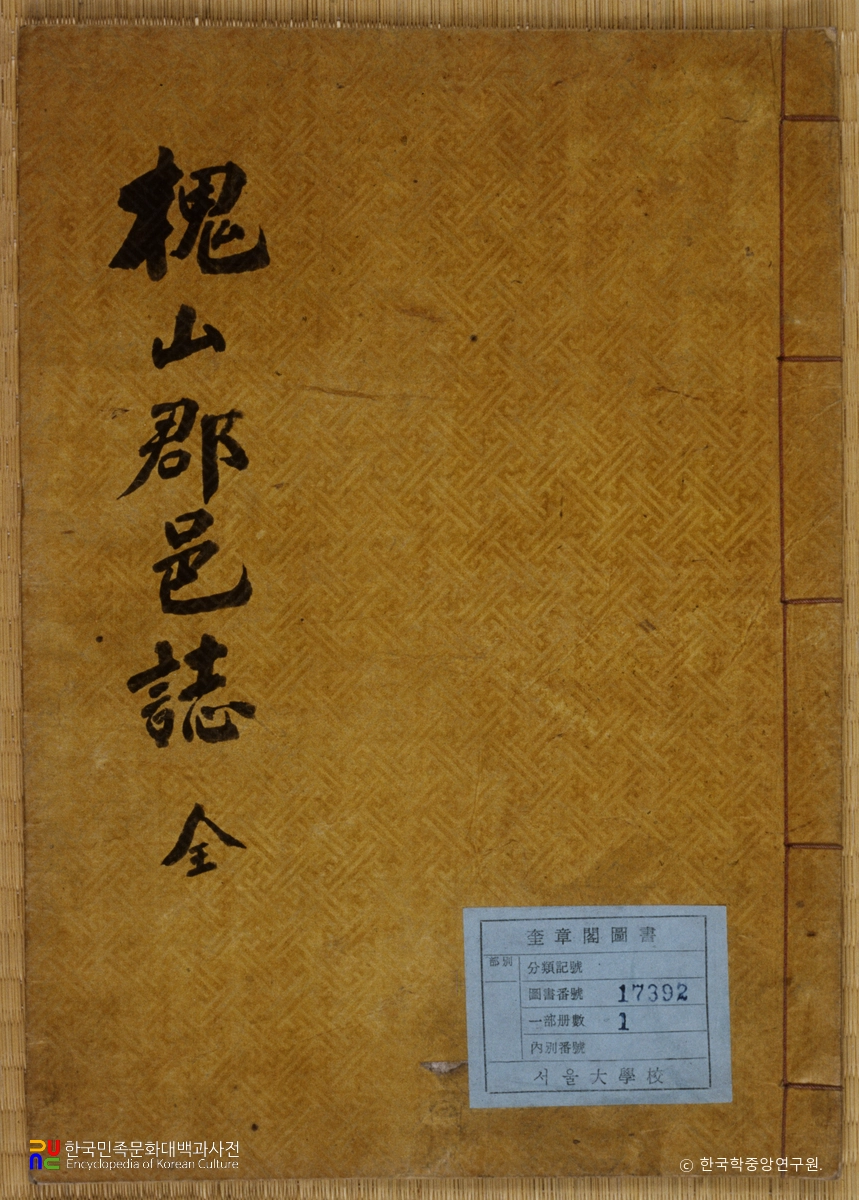 槐山郡邑誌 全
奎章閣圖書
部別
分類記號
圖書番號 17392
一部册數 1
內別番號
서울大學校
한국민족문화대백과사전
Encyclopedia of Korean Culture
ⓒ 한국학중앙연구원.